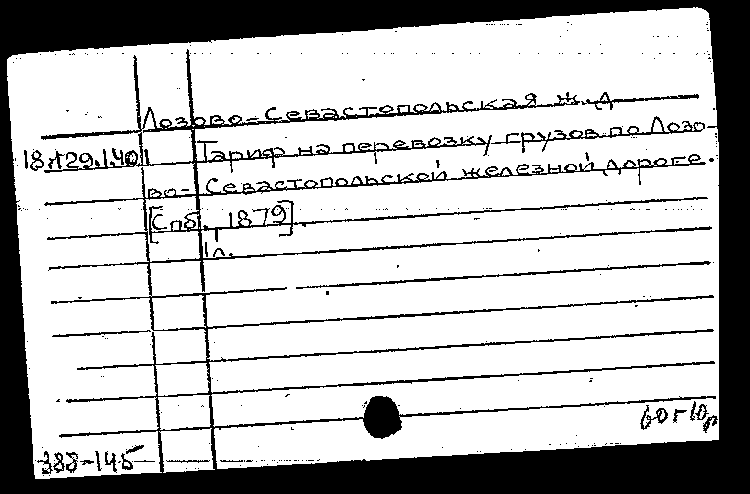 Лозово-Севастопольская ж.д
18.129.1.401 Тариф на перевозку грузов по Лозо-
во-Севастопольской железной дороге.
[Спб., 1879].
1л.
60г10р
388-145